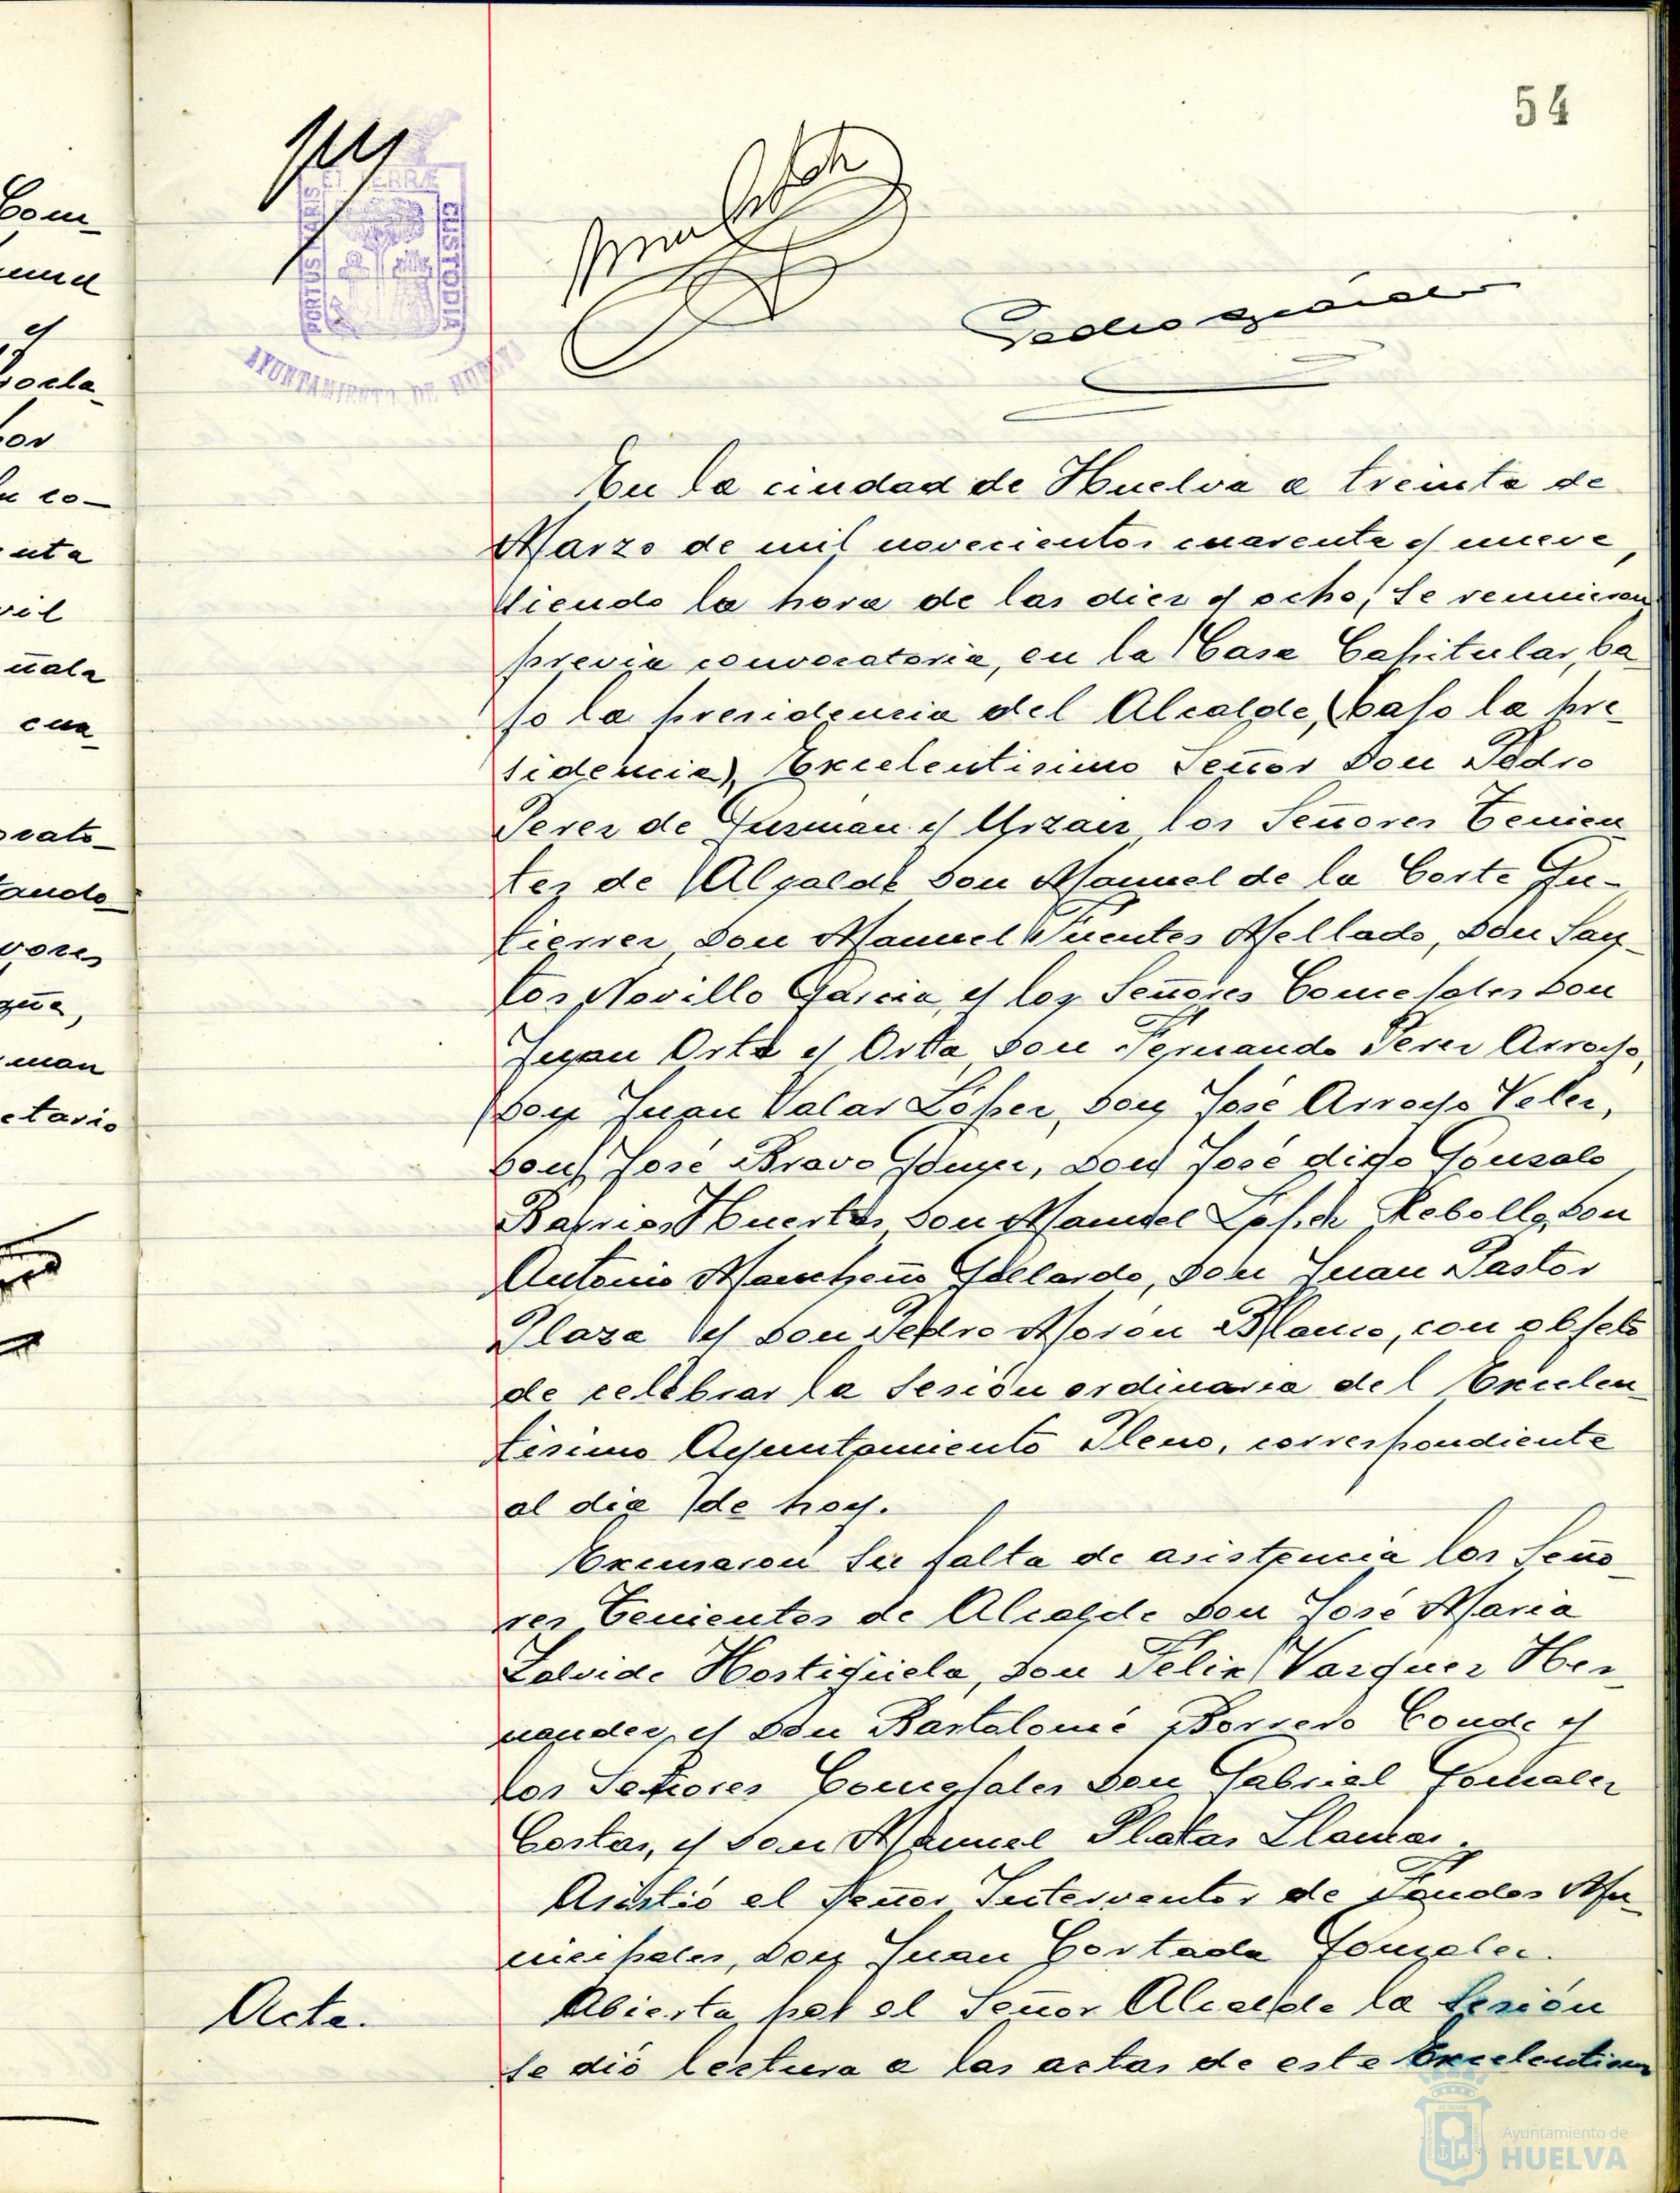 54
PORTUS MARIS
ET TERRÆ
CUSTODIA
AYUNTAMIENTO DE HUELVA
Com_
or
eta
vil
ñala
cua_
man
etario
En la ciudad de Huelva a treinta de
Marzo de mil novecientos cuarenta y nueve,
siendo la hora de las diez y ocho, se reunieron
previa convocatoria, en la Casa Capitular, ba
jo la presidencia del Alcalde, (bajo la pre_
sidencia), Excelentisimo Señor Don Pedro
Perez de Guzman y Urzaiz, los Señores Tenien
tes de Alcalde Don Manuel de la Corte Gu-
tierrez, Don Manuel Fuentes Mellado, Don San_
tos Novillo Garcia, y los Señores Concejales Don
Juan Orta y Orta, Don Fernando Perez Arroyo,
Don Juan Palar López, Don José Arroyo Velez,
Don José Bravo Gomez, Don José digo Gonzalo
Barrios Huertas, Don Manuel Lopez Rebollo, Don
Antonio Mancheño Gallardo, Don Juan Pastor
Plaza y Don Pedro Morón Blanco, con objeto
de celebrar la sesión ordinaria del Excelen_
tisimo Ayuntamiento Pleno, correspondiente
al dia de hoy.
Excusaron su falta de asistencia los Seño_
res Tenientes de Alcalde Don José Maria
Zalvide Hostigüela, Don Felix Vazquez Her_
nandez, y Don Bartolomé Borrero Conde y
los Señores Concejales Don Gabriel Gonzalez
Costas, y Don Manuel Platas Llamas.
Asistió el Señor Interventor de Fondos Mu_
nicipales, Don Juan Cortada Gonzalez.
Acta.
Abierta por el Señor Alcalde la sesión
se dió lectura a las actas de este Excelentisimo
Ayuntamiento de
HUELVA